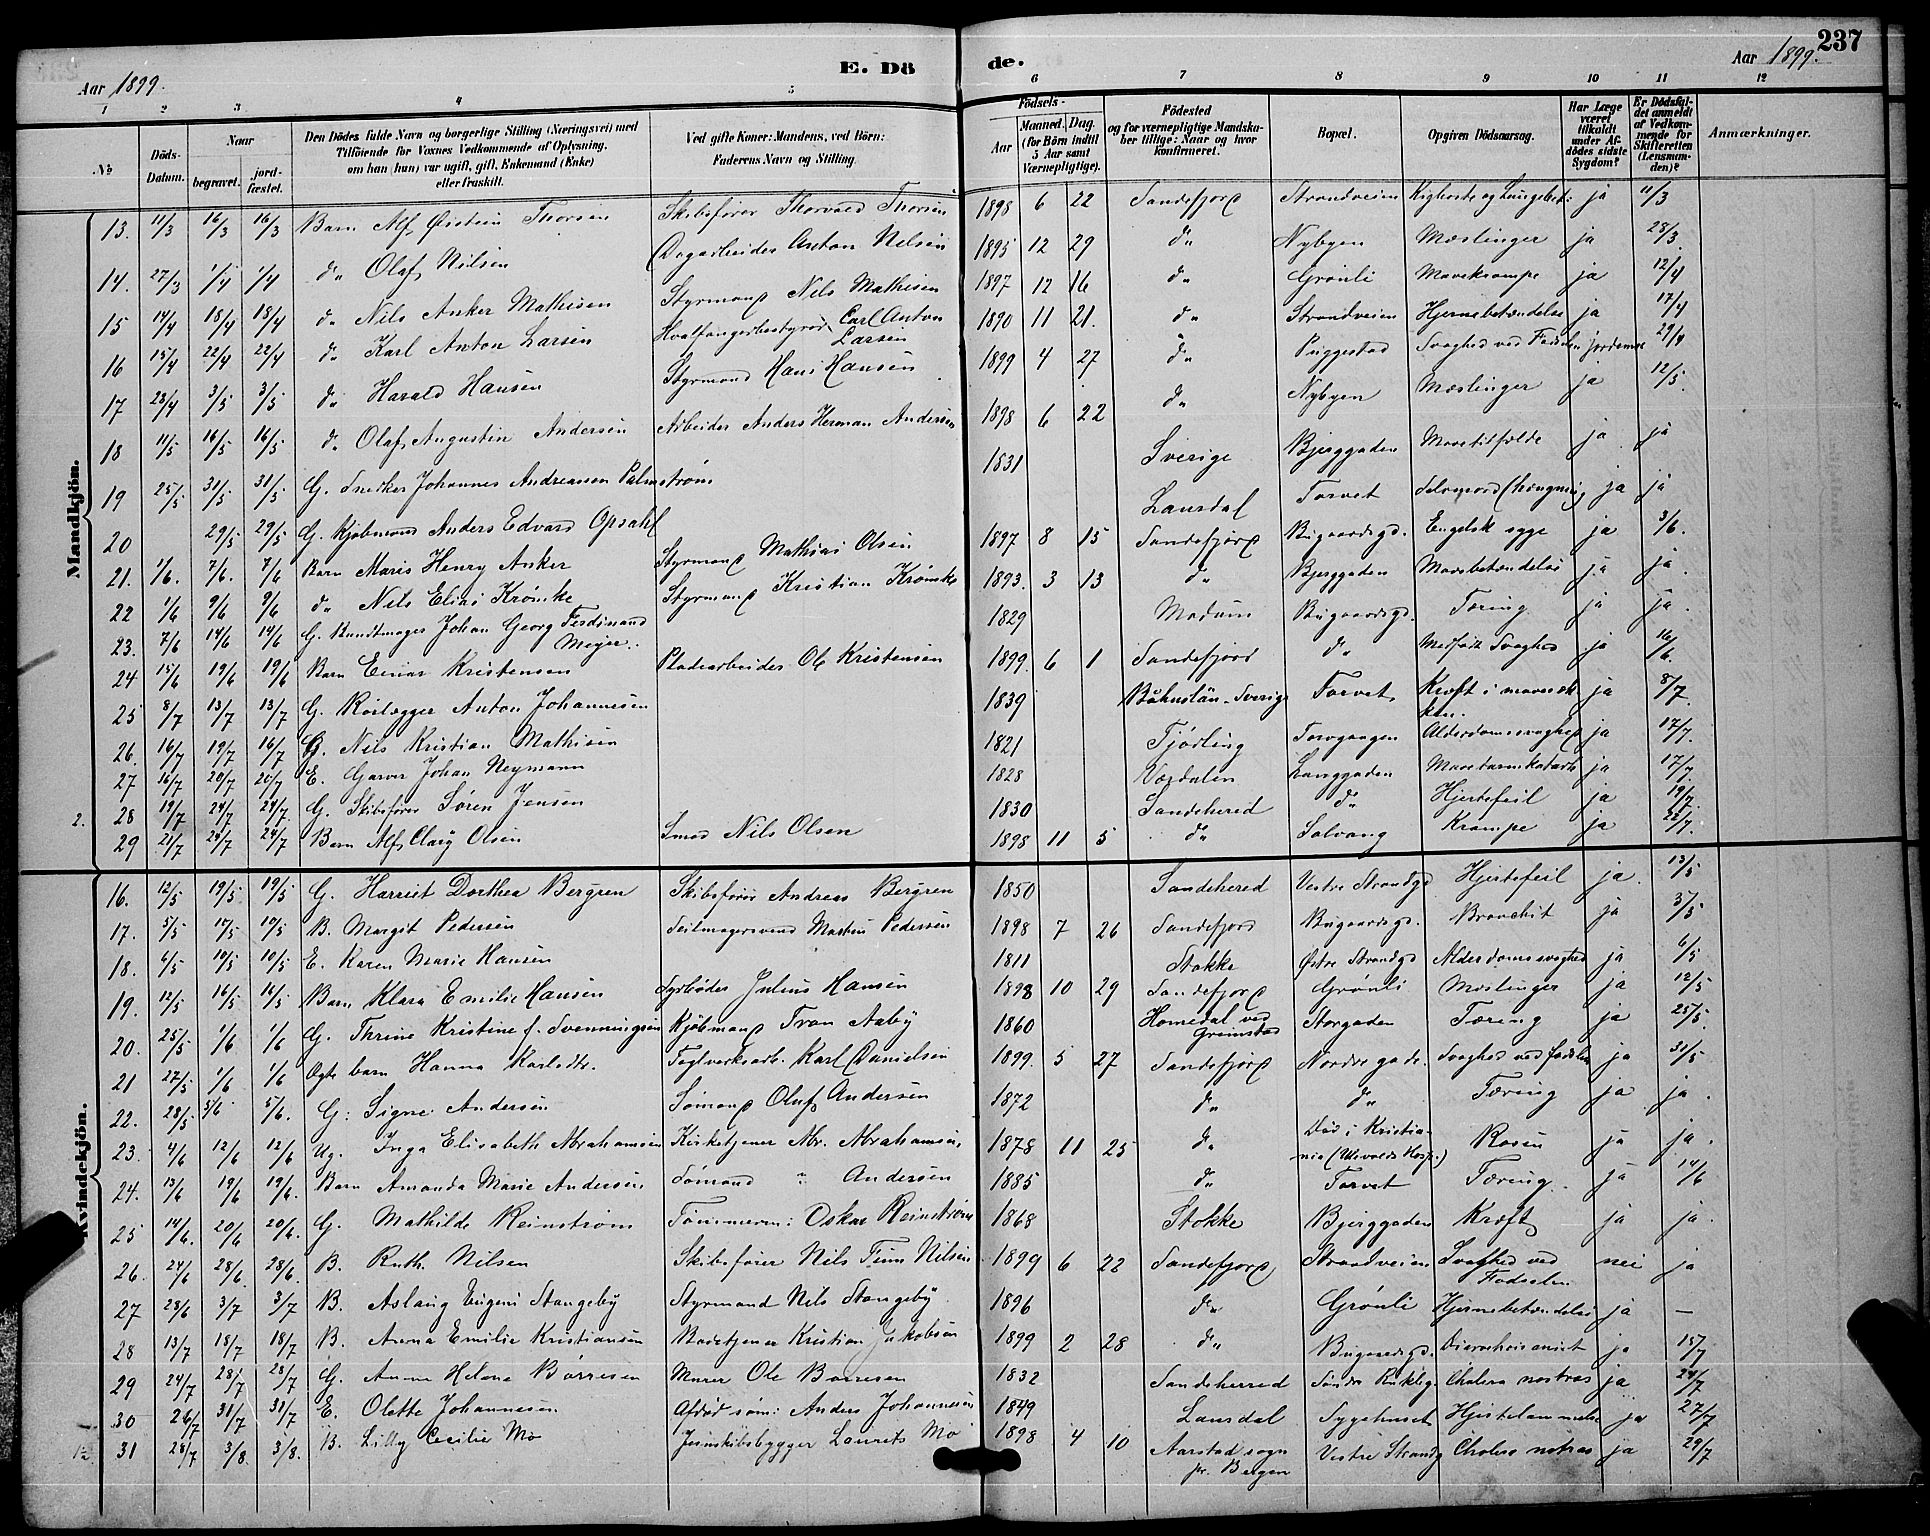 237
Aar 1899.
E. Dö
de.
Aar 1899.
1 2 3 4 5 6 7 8 9 10 11 12
No
Döds-Datum.
Naar begravet. jordfæstet.
Den Dödes fulde Navn og borgerlige Stilling (Næringsvei) med Tilföiende for Voxnes Vedkommende af Oplysning, om han (hun) var ugift, gift, Enkemand (Enke) eller fraskilt.
Ved gifte Koner: Mandens, ved Börn: Faderens Navn og Stilling.
Födsels-
Aar
Maaned. Dag. (for Börn indtil 5 Aar samt Værnepligtige).
Födested og for værnepligtige Mandskaber tillige: Naar og hvor konfirmeret.
Bopæl.
Opgiven Dödsaarsag.
Har Læge været tilkaldt under Afdödes sidste Sygdom?
Er Dödsfaldet anmeldt af Vedkommende for Skifteretten (Lensmanden)?
Anmærkninger.
Mandkjön.
13. 11/3 16/3 16/3 Barn Alf Øistein Thorsen Skibsfører Thorvald Thorsen 1898 6 22 Sandefjord Strandveien Kighoste og Lungebet: ja 11/3
14. 27/3 1/4 1/4 do Olaf Nilsen Dagarbeider Anton Nilsen 1895 12 29 do Nybyen Mæslinger ja 28/3.
15 14/4 18/4 18/4 do Nils Anker Mathisen Styrmand Nils Mathisen 1897 12 16 do Grønli Mavekrampe ja 12/4
16 15/4 22/4 22/4 do Karl Anton Larsen Hvalfangerbestyrer Carl Anton Larsen 1890 11 21. do Strandveien Hjernebetændelse ja 17/4
17 28/4 3/5 3/5 do Harald Hansen Styrmand Hans Hansen 1899 4 27 do Puggestad Svaghed ved Fødselen jordemor 29/4
18 11/5 16/5 16/5 do Olaf Augustin Andersen Arbeider Anders Herman Andersen 1898 6 22 do Nybyen Mæslinger ja 12/5.
19 25/5 31/5 31/5 G. Snedker Johannes Andreassen Palmstrøm 1831 Sverige Bjerggaden Mavetilfælde ja ja
20 29/5 29/5 G. Kjøbmand Anders Edvard Opsahl Laurdal Torvet Selvmord (hængning) ja ja
21. 1/6. 7/6. 7/6 Barn Maris Henry Anker Styrmand Mathias Olsen 1897 8 15 Sandefjord Bugaardsgd. Engelsk syge ja 3/6.
22 1/6 9/6 9/6 do Nils Elias Krømke Styrmand Kristian Krømke 1893. 3 13 do Bjerggaden Mavebetændelse ja ja.
23. 7/6 14/6 14/6 G. Bundtmager Johan Georg Ferdinand Meyer. 1829 Modum Bugaardsgd. Tæring ja ja.
24 15/6 19/6 19/6 Barn Einar Kristensen Pladearbeider Ole Kristensen 1899. 6 1 Sandefjord do Medfødt Svaghed ja 16/6.
25 8/7 13/7 13/7 G. Anton Johannesen 1839 Båhuslän-Sverige Torvet Kræft i mavesækken. ja 8/7.
26. 16/7 19/7 16/7 G. Nils Kristian Mathisen 1821 Tjødling Torvgangen Alderdomssvaghed ja 17/7.
27 16/7 20/7 20/7 E. Garver Johan Neymann 1828 Langgaden Mavetarmkatarrh ja 17/7.
2. 28 19/7 24/7 24/7. G. Skibsfører Søren Jensen 1830 Sandeherred do Hjertefeil ja 19/7.
29 21/7 24/7 24/7 Barn Alf Olsen Smed Nils Olsen 1898 11 5 do Solvang Krampe ja 22/7.
Kvindekjön.
16. 12/5 19/5 19/5 G. Harriet Dorthea Bergren Skibsfører Andreas Bergren 1850 Sandeherred Vestre Strandgd Hjertefeil ja. 13/5
17. 5/5 10/5 10/5 B. Margit Pedersen Seilmagersvend Martin Pedersen 1898 7 26 Sandefjord Bugaardsgd. Bronchit ja 3/5
18. 6/5 10/5 10/5 E. Karen Marie Hansen 1811 Stokke Østre Strandgd Alderdomssvaghed ja 6/5
19. 12/5 16/5 16/5 Barn Klara Emilie Hansen Fyrbøder Julius Hansen 1898 10 29 Sandefjord Grønli Mæslinger ja 12/5
20. 25/5 1/6 1/6 G. Thrine Kristine f. Svenningsen Kjøbmand Tron Aaby 1860 Homedal ved Grimstad Storgaden Tæring ja 25/5.
21 27/5 1/6 1/6 Ægte barn Hanna Karlsdtr. Teglverksarb. Karl Danielsen 1899. 5 27 Sandefjord Nordre gade. Svaghed ved fødselen ja 31/5
22. 28/5 5/6 5/6. G. Signe Andersen Sømand Oluf Andersen 1872 do do Tæring ja ja.
23. 4/6 12/6 12/6 Ug. Inga Elisabeth Abrahamsen Kirketjener Abr. Abrahamsen. 1878 11 25 do Død i Kristiania (Ulevolds Hosp.) Rosen ja ja.
24. 13/6 19/6 19/6. Barn Amanda Marie Andersen Sømand " Andersen 1885 do Torvet Tæring. ja 14/6
25 14/6. 20/6 20/6. G. Mathilde Reinstrøm Tømmerm: Oskar Reinstrøm 1868 Stokke Bjerggaden Kræft ja ja.
26. 24/6 28/6. 28/6. B. Ruth Nilsen Skibsfører Nils Finn Nilsen 1899 6 22 Sandefjord Strandveien Svaghed ved Fødselen nei ja
27 28/6 3/7 3/7 B. Aslaug Eugeni Stangeby Styrmand Nils Stangeby 1896 do Grønli Hjernebetændelse ja —
28 13/7 18/7 18/7 B. Anna Emilie Kristiansen Badetjener Kristian Jakobsen 1899 2 28 do Bugaardsgd. ja 15/7
29 24/7 28/7 28/7 G. Anna Helene Børresen Murer Ole Børresen 1832 Sandeherred Søndre Cholera nostras ja 24/7
30 26/7 31/7 31/7 E. Olette Johannesen Afdød søm: Anders Johannesen 1849 Laurdal Sygehuset Hjertelammelse ja 27/7
31 28/7 3/8 3/8. B. Lilly Cecilie Mo Jernskibsbygger Laurits Mo 1898 4 10 Aarstad sogn pr. Bergen Vestre Strandg Cholera nostras ja 29/7